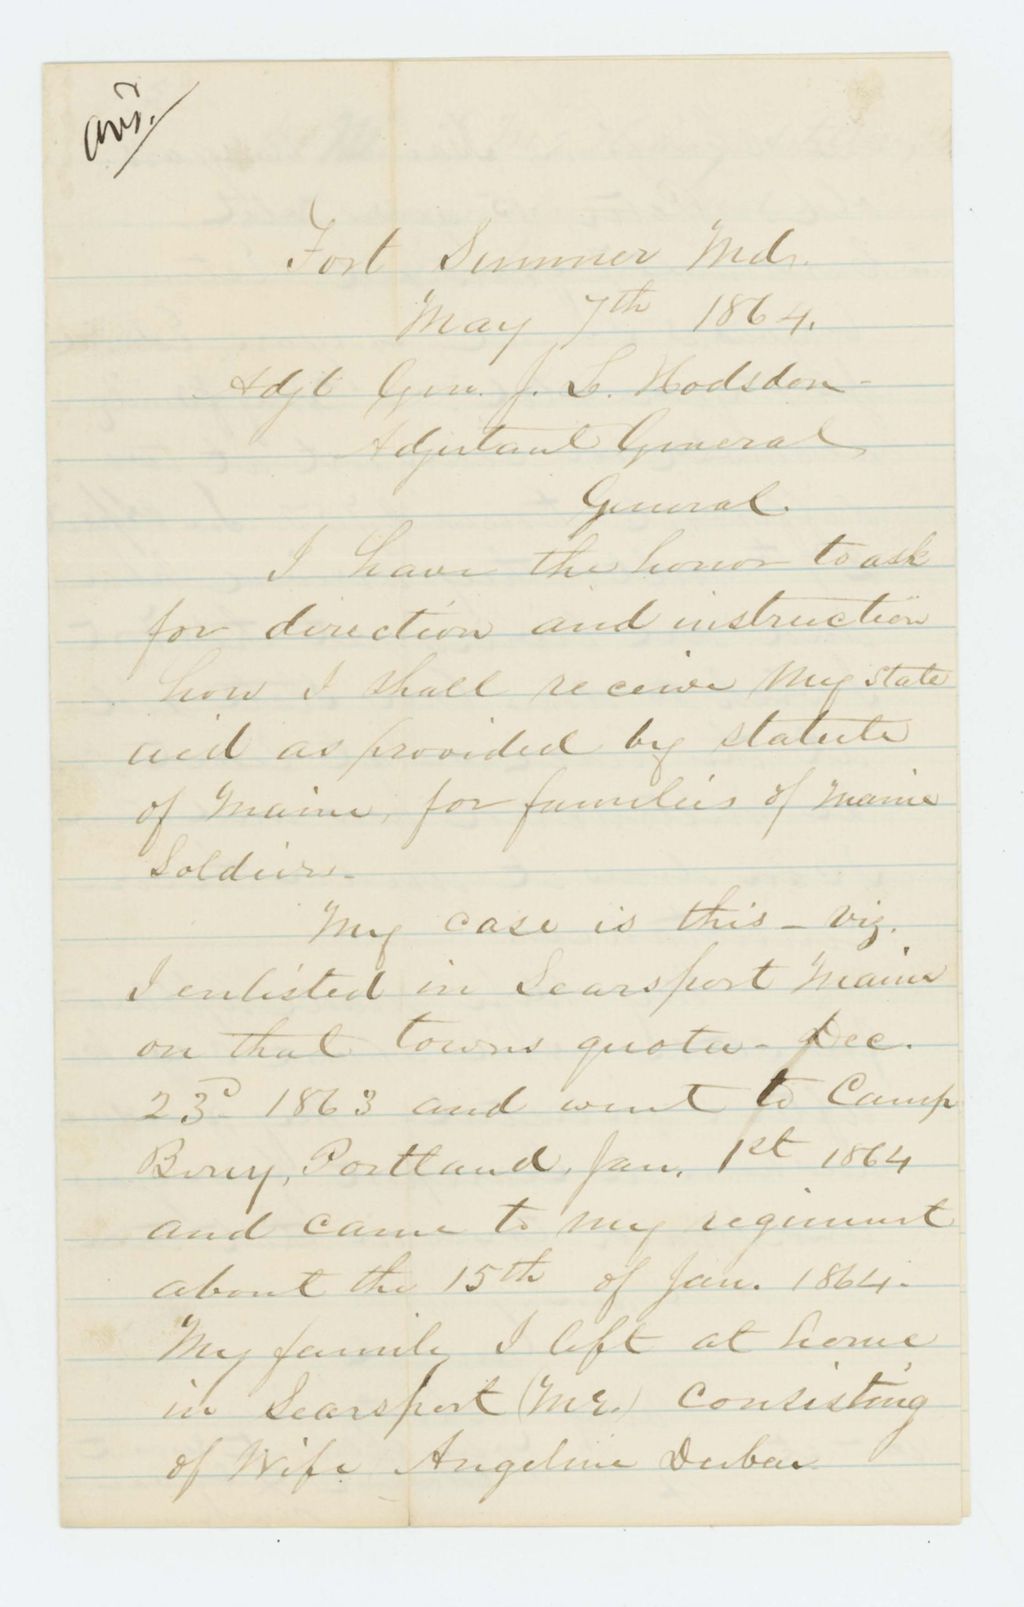 ans.
Fort Sumner Md.
May 7th 1864.
Adjt Gen. J. L. Hodsdon-
Adjutant General
General.
I have the honor to ask
for direction and instruction
how I shall receive My state
aid as provided by statute
of Maine, for families of Maine
Soldiers.
My case is this - viz.
I enlisted in Searsport Maine
on that towns quota - Dec.
23d 1863 and went to Camp
Berry, Portland, Jan. 1st 1864
and came to my regiment
about the 15th of Jan. 1864.
My family I left at home
in Searsport (Me.) consisting
of Wife Angeline